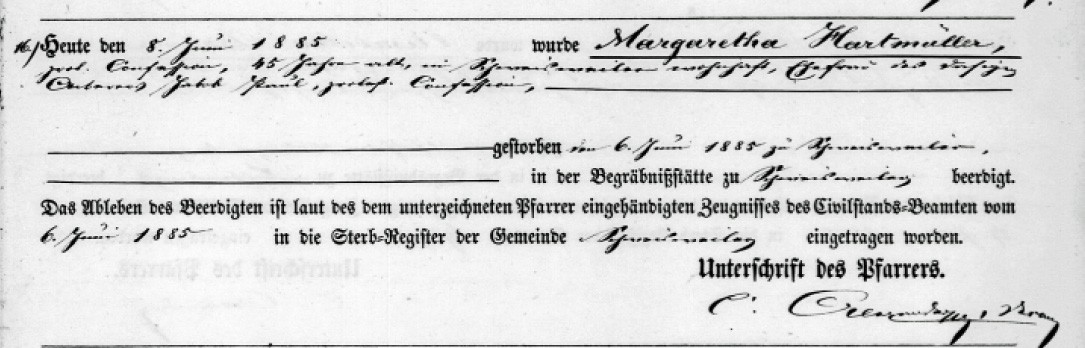 16/ Heute den 8. Juni 1885 wurde Margaretha Hartmüller,
prot. Confession, 45 Jahre alt, in wohnhaft, Ehefrau des hiesigen
Ackerers Jakob Paul, protest. Confession,
gestorben den 6. Juni 1885 zu
in der Begräbnißstätte zu beerdigt.
Das Ableben des Beerdigten ist laut des dem unterzeichneten Pfarrer eingehändigten Zeugnisses des Civilstands-Beamten vom
6. Juni 1885 in die Sterb-Register der Gemeinde eingetragen worden.
Unterschrift des Pfarrers.
C.